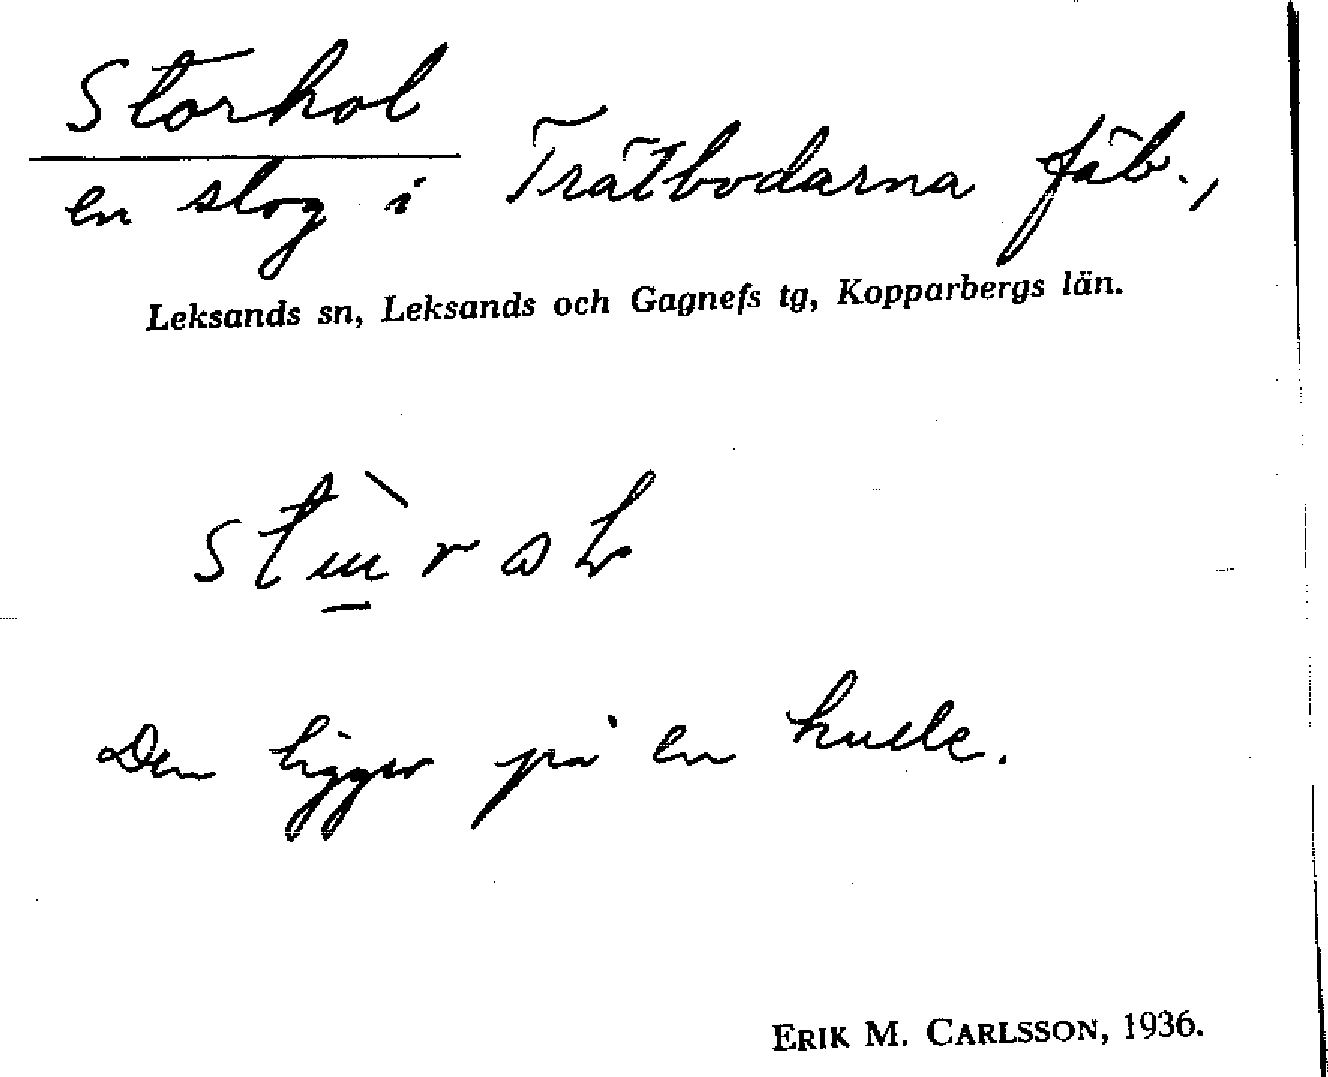 Storhol
en slog i Trätbodarna fäb.,
Leksands sn, Leksands och Gagnefs tg, Kopparbergs län.
Den ligger på en kulle.
ERIK M. CARLSSON, 1936.